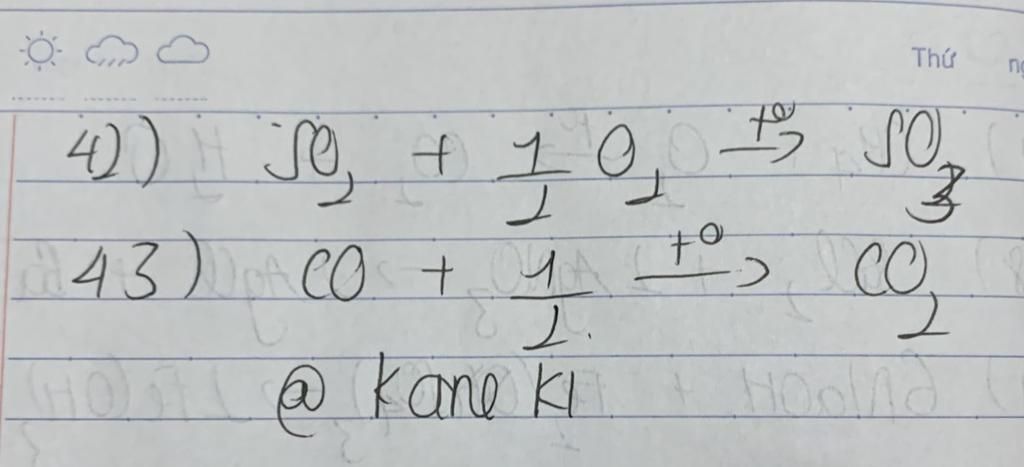 Thứ
42) SO₂ + 1/2 O₂ →t⁰ SO₃
43) CO + 1/2 →t⁰ CO₂
@ Kane KI